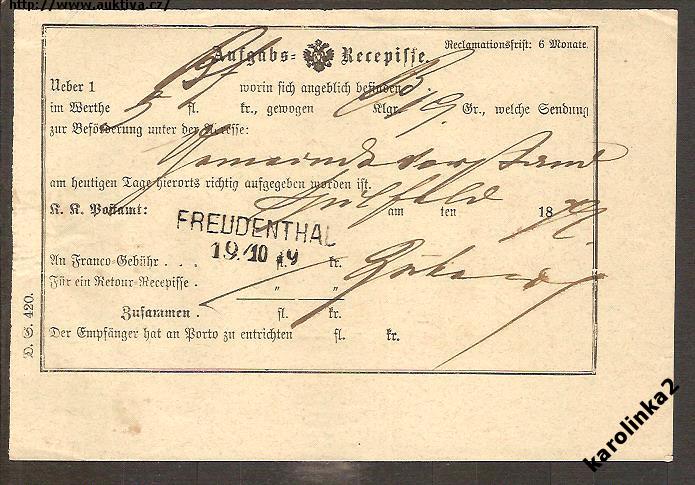 http://www.auktiva.cz/
Aufgabs- Recepisse.
Reclamationsfrist: 6 Monate.
Ueber 1 worin sich angeblich befinden
im Werthe 5 fl. kr., gewogen Klgr. Gr., welche Sendung
zur Beförderung unter der Adresse:
Gemeindevorstand
am heutigen Tage hierorts richtig aufgegeben worden ist.
K. K. Postamt: am ten 18
FREUDENTHAL
19/10
An Franco-Gebühr . . . fl. kr.
Für ein Retour-Recepisse . " "
Zusammen . fl. kr.
Der Empfänger hat an Porto zu entrichten fl. kr.
D. S. 420.
karolinka2